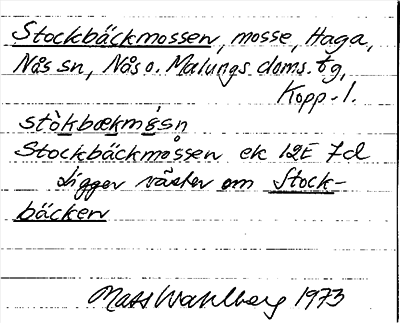 Stockbäckmossen, mosse, Haga,
Nås sn, Nås o. Malungs doms. tg,
Kopp. l.
stòkbækmósn
Stockbäckmossen ek 12E 7d
Ligger väster om Stock-
bäcken
Mats Wahlberg 1973